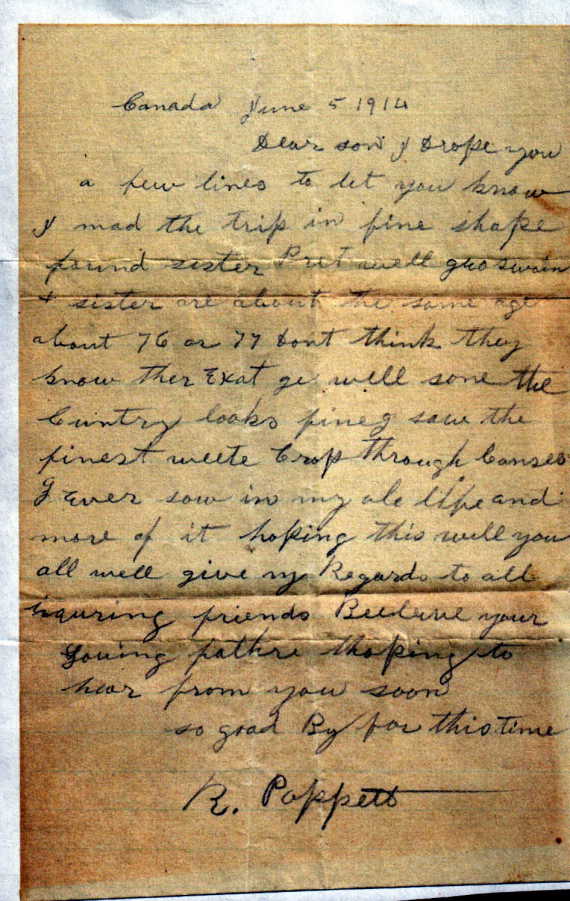 Canada June 5 1914
Dear son I Drope you
a few lines to let you know
I mad the trip in fine shape
found sister Prit well
& sister are about the same age
about 76 or 77 Dont think they
know ther Exat ge well sone the
Cuntry looks fine I saw the
finest weete Crop through Canses
I Ever saw in my ole life and
more of it hoping this will you
all well give my Regards to all
friends Beeleve your
Loving fathre hoping to
hear from you soon
so good By for this time
R. Poppett